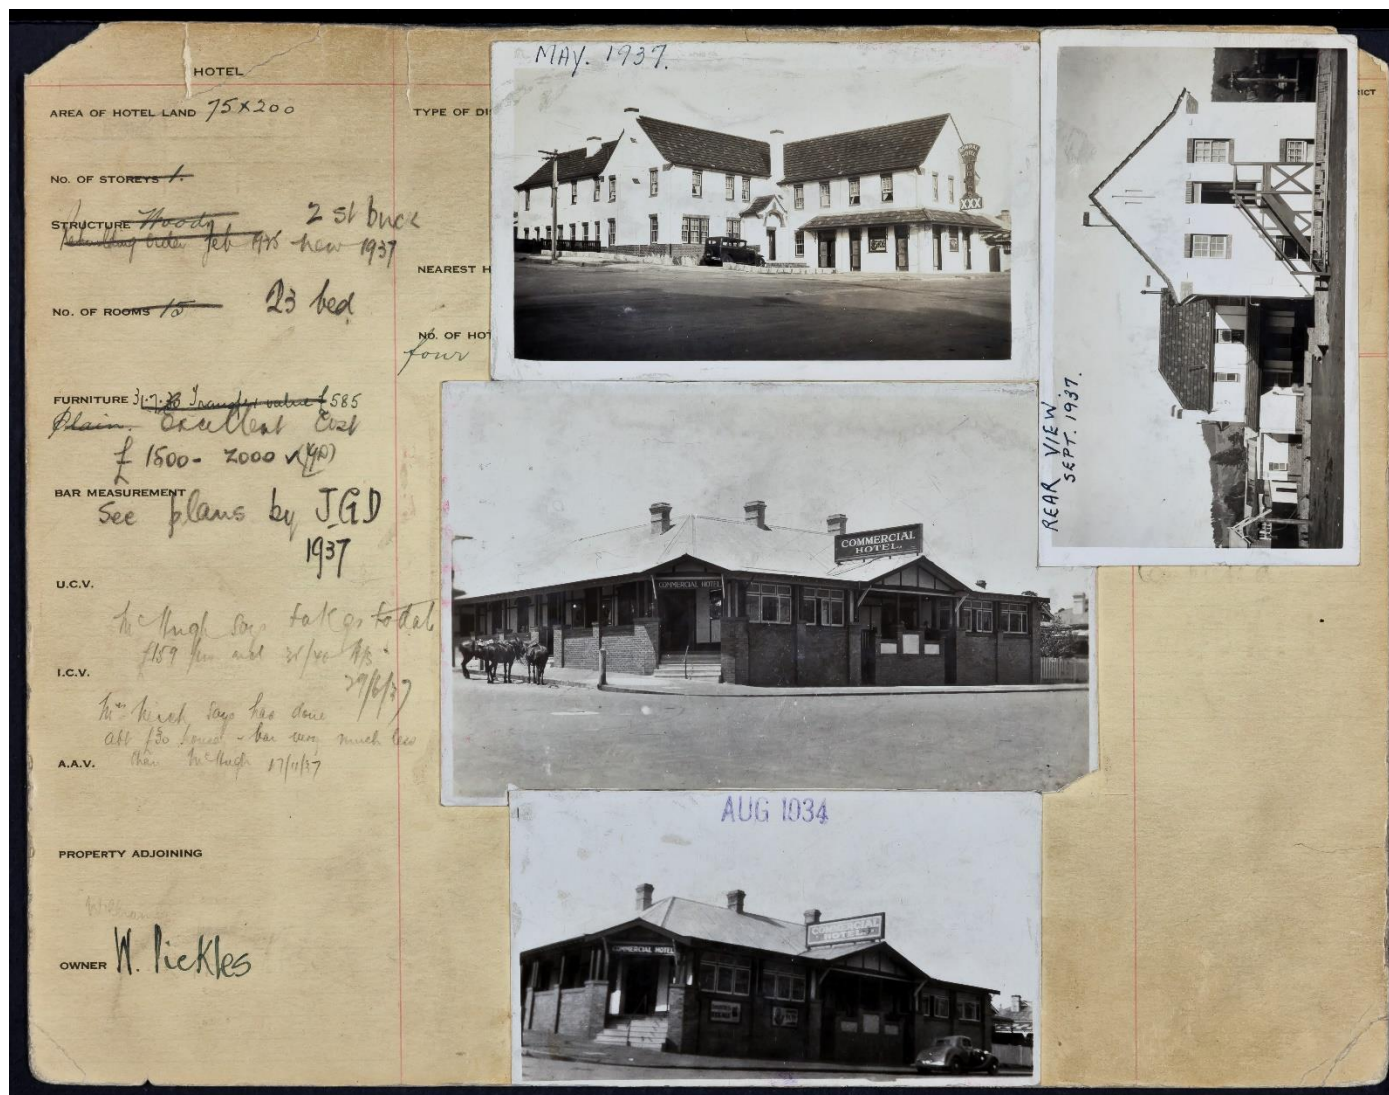 HOTEL
AREA OF HOTEL LAND 75 x 200
TYPE OF DI
No. OF STOREYS 1.
STRUCTURE Wood 2 st brick
Rebuilding order Feb 1935 new 1937
NEAREST H
No. OF ROOMS 15 23 bed
No. OF HOT
four
FURNITURE 31.7.33 Transfer value £585
Plain. Excellent Cost
£1500 - 2000
BAR MEASUREMENT
See plans by J.G.D
1937
U.C.V.
McHugh says takgs to date
£159 pw and
29/6/37
I.C.V.
says has done
abt £30 house - bar very much less
than McHugh 17/11/37
A.A.V.
PROPERTY ADJOINING
William
OWNER W. Pickles
MAY. 1937.
HOTEL
XXX
REAR VIEW.
SEPT. 1937.
ICT
COMMERCIAL
HOTEL
COMMERCIAL HOTEL
AUG 1934
COMMERCIAL
HOTEL
COMMERCIAL HOTEL